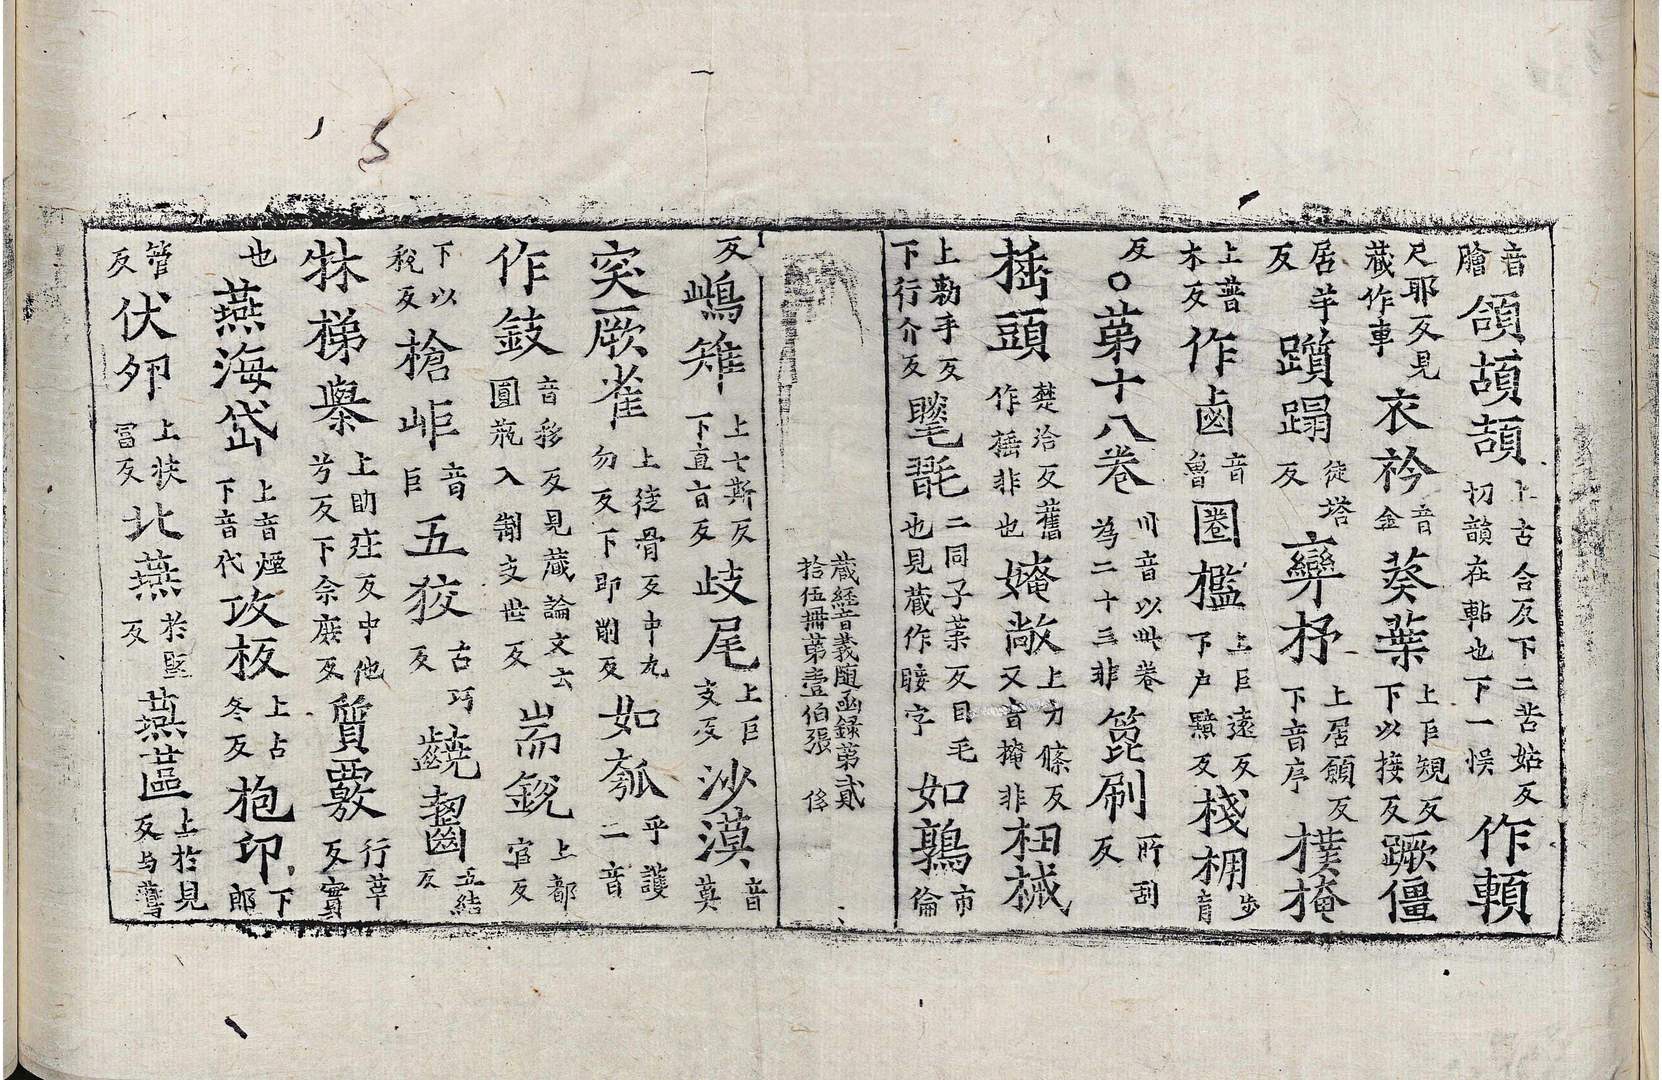 音膾頜頡頡上古合反下二苦姑反切韻在䩞也下一悮作頼
尺耶反見藏作車衣衿音金葵葉上巨規反下以接反蹶僵
居羊反躓蹋徒塔反孿杼上居願反下音序樸掩
上普木反作鹵音魯圈檻上巨遠反下户黤反棧枏步育
反○苐十八卷川音以此卷為二十三非箆刷所刮反
頭楚洽反舊作捶非也媕敞上力條反又音掩非杻械
上勑手反下行介反毷二同子葉反目毛也見藏作睫字如鶉市倫
藏經音義随函録第貳拾伍冊第壹伯張 俻
反鴟雉上七斯反下直旨反歧尾上巨支反沙漠音莫
突厥雀上徒骨反中九勿反下即削反如瓠乎護二音
作鼓音移反見藏論文云圓瓶入制支世反耑鋭上都官反
下以税反槍岠音巨五狡古巧反齩齧五結反
牀梯舉上助庄反中他兮反下余㢡反質覈行革反實
也燕海岱上音煙下音代攻板上占冬反抱卬下郎
管反伏夘上扶冨反北燕於堅反燕蓲上於見反与讌